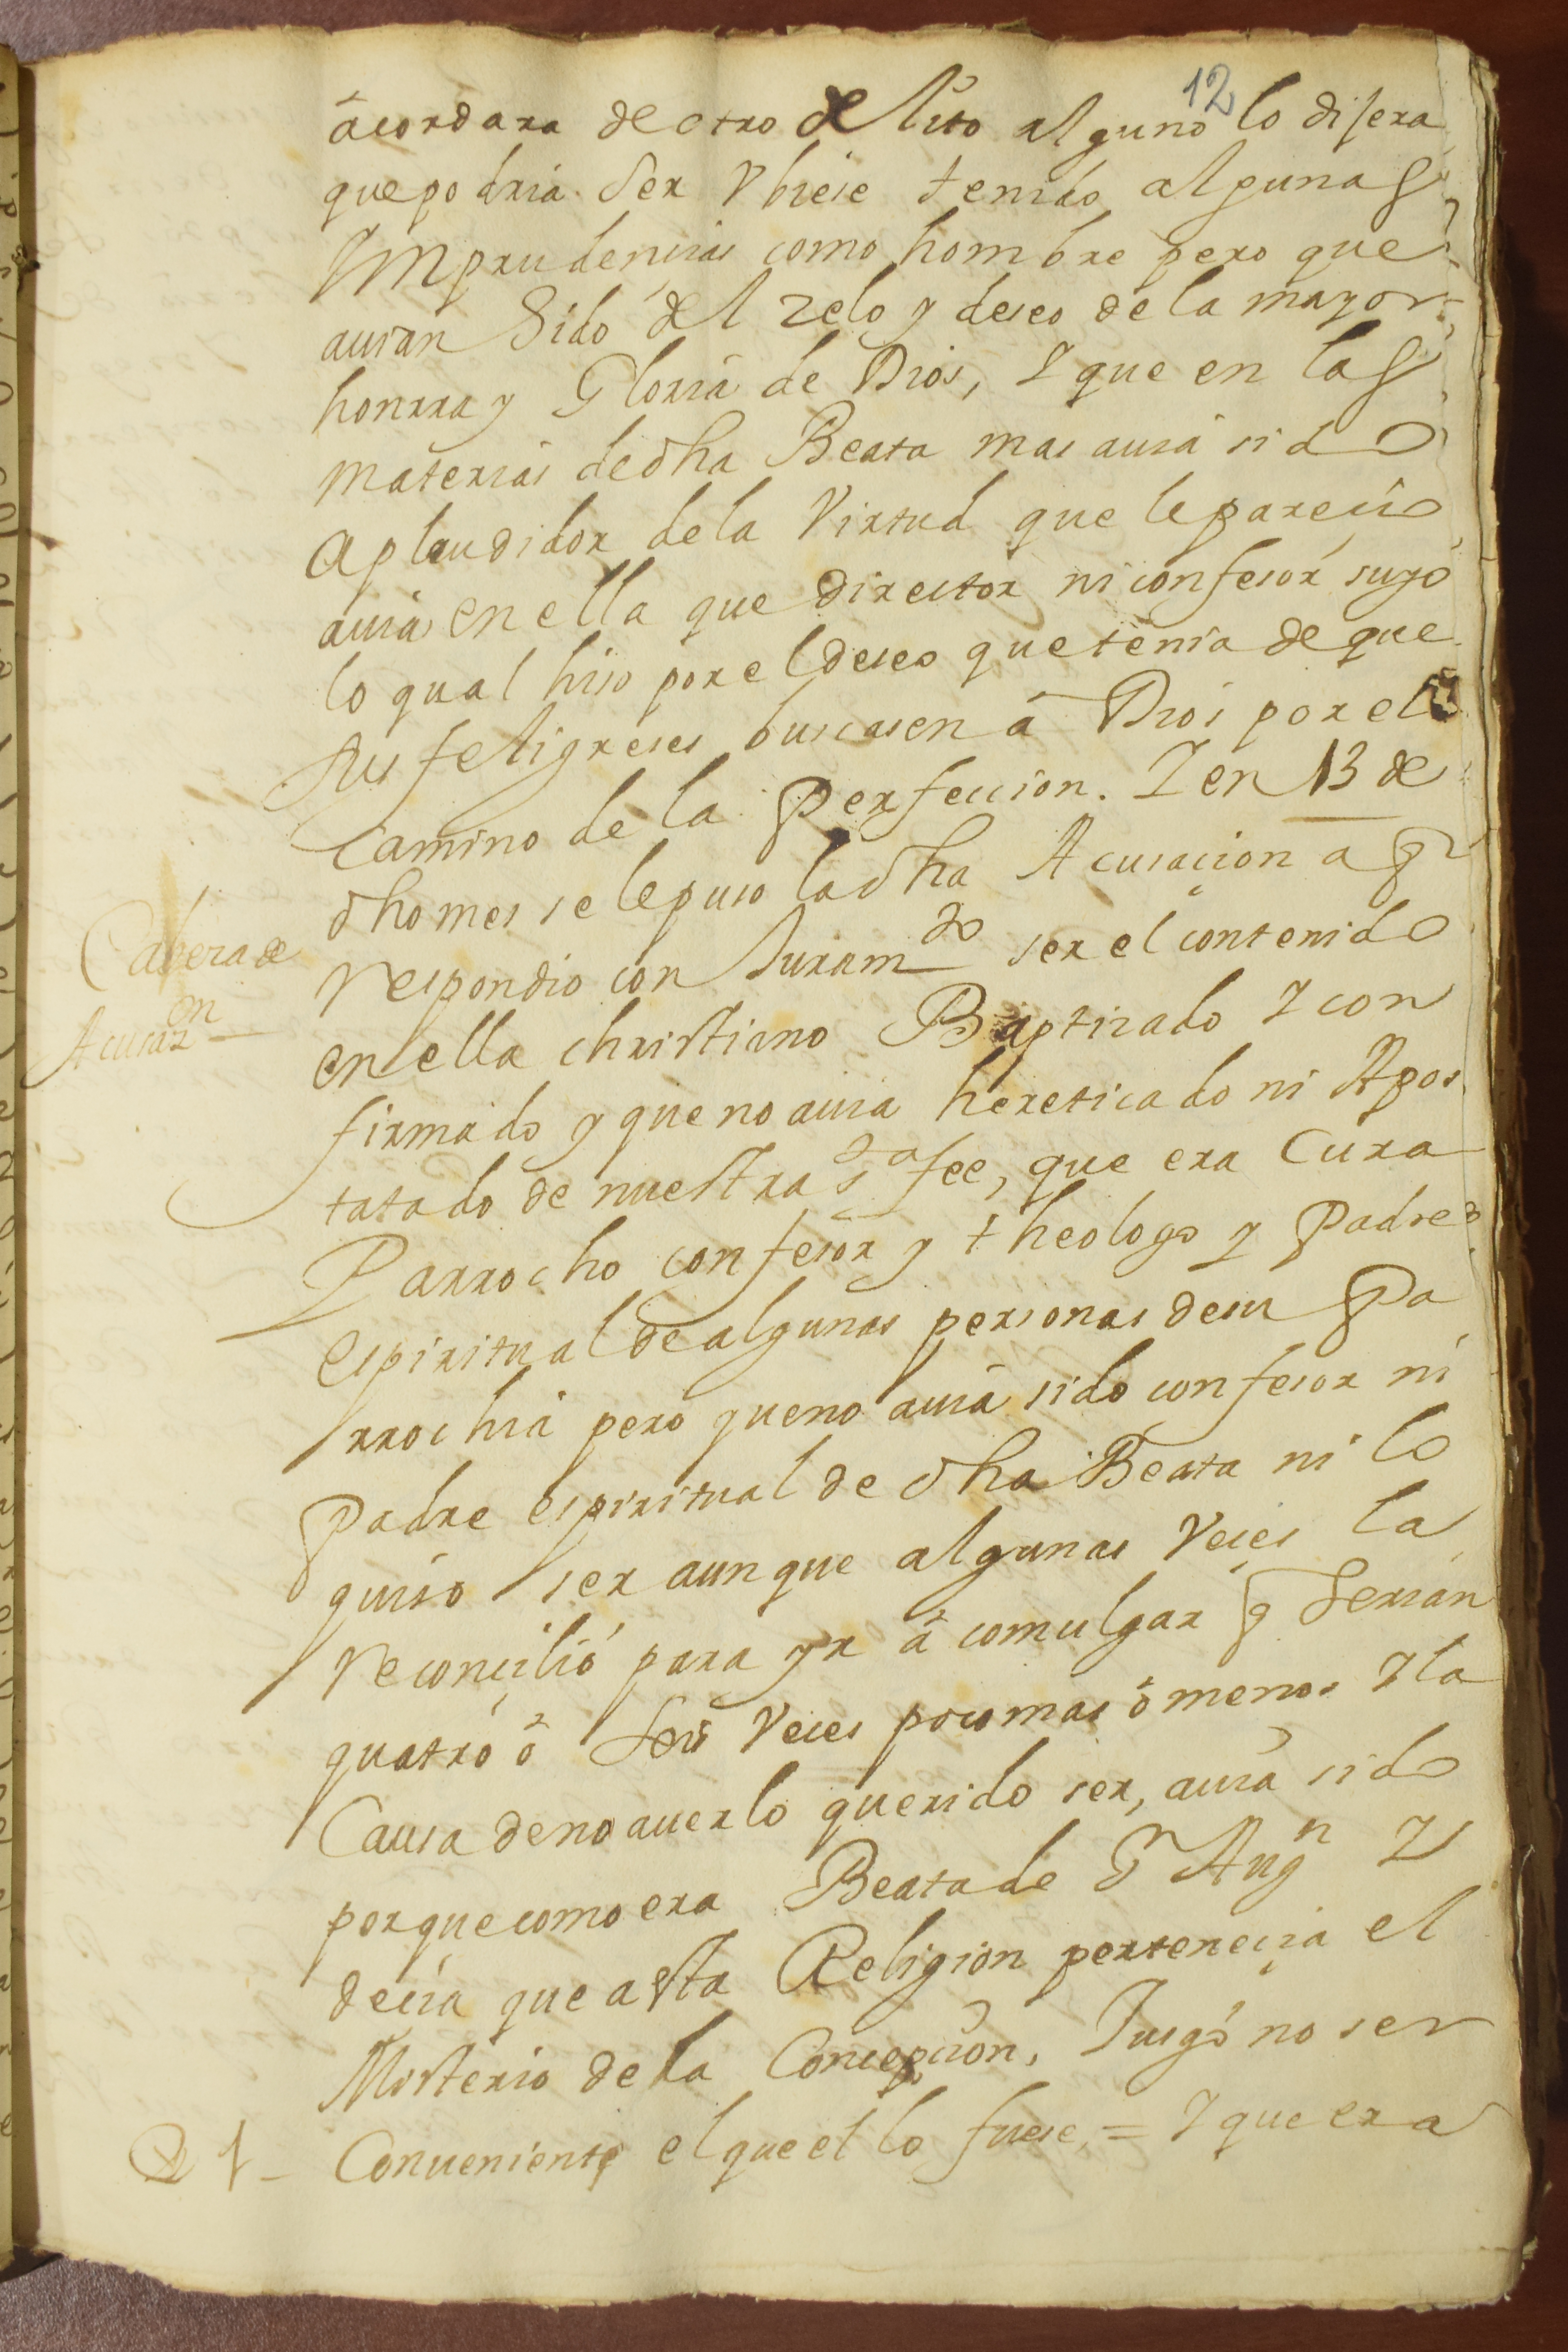 12
acordara de otro delito alguno lo dijera
que podria ser Vbiese tenido algunas
Ymprudencias como hombre pero que
auian Sido del zelo y deseo de la mayor
honrra y Gloria de Dios, Y que en las
materias de dha Beata mas auia sido
aplaudidor de la Virtud que le parecio
auia en ella que director ni confesor suyo
lo qual hiso por el deseo que tenia de que
sus feligreses buscasen a Dios por el
camino de la Perfeccion. Y en 13 de
dho mes se le puso la dha Acusaçion a q
Cabeza de
Acusaz.on
Respondio con Juram.to ser el contenido
en ella christiano Baptizado Y con
firmado y que no auia hereticado ni Apos
tatado de nuestra S.ta fee, que era Cura
Parrocho confesor y theologo y Padre
espiritual de algunas personas de su Pa
rrochia pero que no auia sido confesor ni
Padre espiritual de dha Beata ni lo
quiso ser aunque algunas Veçes la
Reconçilió para yr á comulgar q Serian
quatro ó seis Veces poco mas ó menos Y la
Causa de no auerlo querido ser, auia sido
porque como era Beata de S.n Aug.n Y
decia que a esta Religion perteneçia el
Misterio de la Concepçion, Jusgó no ser
1 - Conueniente el que el lo fuese, = Y que era